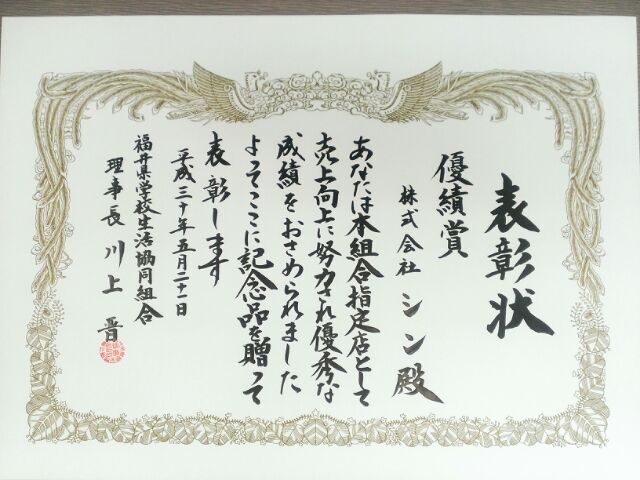 表彰状
優績賞
株式会社 シン殿
あなたは本組合指定店として
売上向上に努力され優秀な
成績をおさめられました
よってここに記念品を贈って
表彰します
平成三十年五月二十一日
福井県学校生活協同組合
理事長 川上 晋